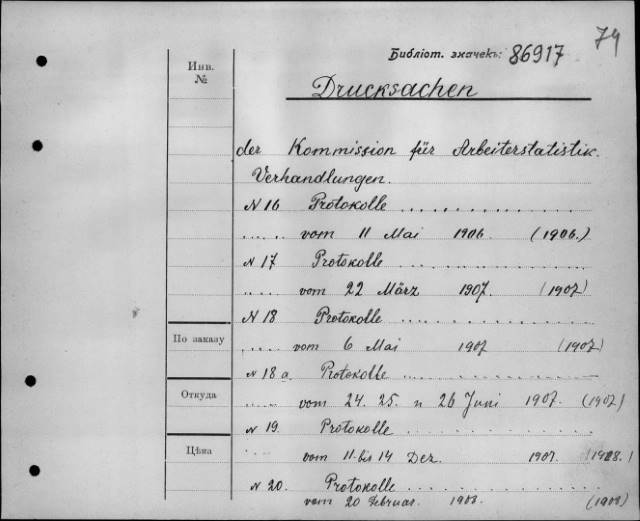 74
Библіот. значекъ: 86917
Инв.
№
Drucksachen
der Kommission für Arbeiterstatistik.
Verhandlungen.
N 16 Protokolle ..............
..... vom 11 Mai 1906. (1906.)
N 17 Protokolle ..............
..... vom 22 März 1907. (1907)
N 18 Protokolle ..............
По заказу
..... vom 6 Mai 1907 (1907)
N 18 a. Protokolle ..............
Откуда
..... vom 24. 25. u 26 Juni 1907. (1907)
N 19. Protokolle ..............
Цѣна
vom 11. bis 14 Dez. 1907. (1908.)
N 20. Protokolle ..............
vom 20 Februar. 1908. (1908)